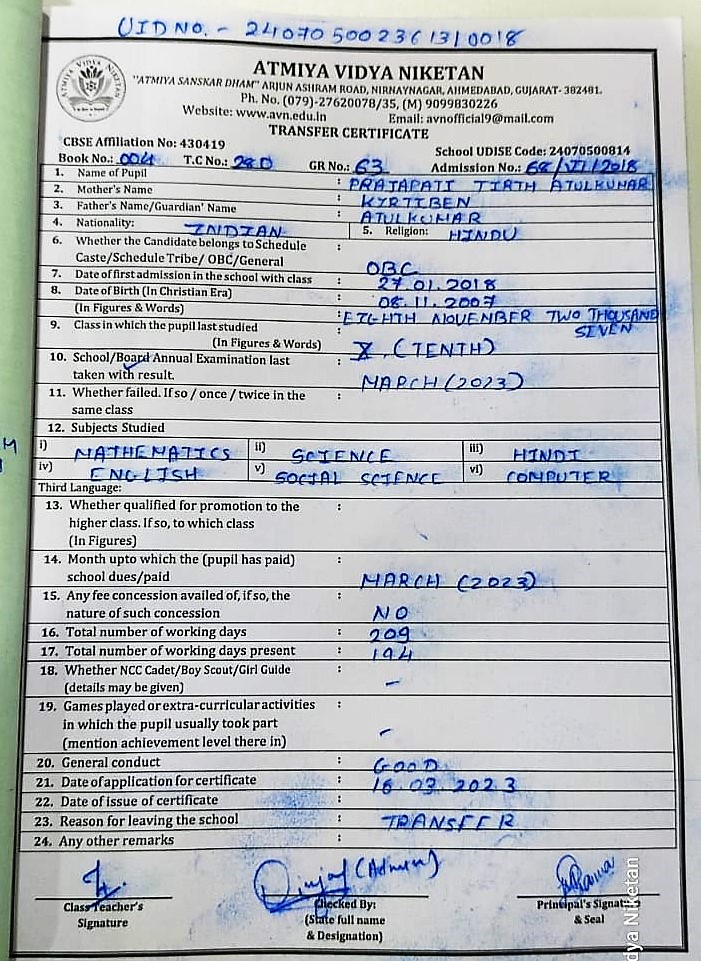 UID NO. - 24070500236131 0018
ATMIYA VIDYA NIKETAN
ATMIYA VIDYA NIKETAN
"ATMIYA SANSKAR DHAM" ARJUN ASHRAM ROAD, NIRNAYNAGAR, AHMEDABAD, GUJARAT- 382481.
Ph. No. (079)-27620078/35, (M) 9099830226
Website: www.avn.edu.in Email: avnofficial9@mail.com
TRANSFER CERTIFICATE
CBSE Affiliation No: 430419 School UDISE Code: 24070500814
Book No.: 004 T.C No.: 280 GR No.: 63 Admission No.: 68/VI/2018
1. Name of Pupil : PRAJAPATI TIRTH ATULKUMAR
2. Mother's Name : KIRTIBEN
3. Father's Name/Guardian' Name : ATULKUMAR
4. Nationality: INDIAN 5. Religion: HINDU
6. Whether the Candidate belongs to Schedule :
Caste/Schedule Tribe/ OBC/General OBC
7. Date of first admission in the school with class : 27.01.2018
8. Date of Birth (In Christian Era) : 08.11.2007
(In Figures & Words) : EIGHTH NOVEMBER TWO THOUSAND
SEVEN
9. Class in which the pupil last studied :
(In Figures & Words) X (TENTH)
10. School/Board Annual Examination last :
taken with result. MARCH (2023)
11. Whether failed. If so / once / twice in the :
same class
12. Subjects Studied
i) MATHEMATICS ii) SCIENCE iii) HINDI
iv) ENGLISH v) SOCIAL SCIENCE vi) COMPUTER
Third Language:
13. Whether qualified for promotion to the :
higher class. If so, to which class
(In Figures)
14. Month upto which the (pupil has paid) :
school dues/paid MARCH (2023)
15. Any fee concession availed of, if so, the :
nature of such concession NO
16. Total number of working days : 209
17. Total number of working days present : 194
18. Whether NCC Cadet/Boy Scout/Girl Guide :
(details may be given) -
19. Games played or extra-curricular activities :
in which the pupil usually took part
(mention achievement level there in) -
20. General conduct : GOOD
21. Date of application for certificate : 16.03.2023
22. Date of issue of certificate :
23. Reason for leaving the school : TRANSFER
24. Any other remarks :
(Admin)
Class Teacher's
Signature
Checked By:
(State full name
& Designation)
Principal's Signatu
& Seal
dya Niketan